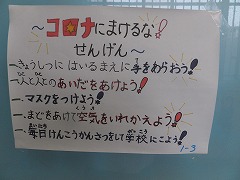 ～コロナにまけるな！
せんげん～
一、きょうしつにはいるまえに手をあらおう！
一、人と人とのあいだをあけよう！
一、マスクをつけよう！
一、まどをあけて空気をいれかえよう！
一、毎日けんこうかんさつをして学校にこよう！
1-3